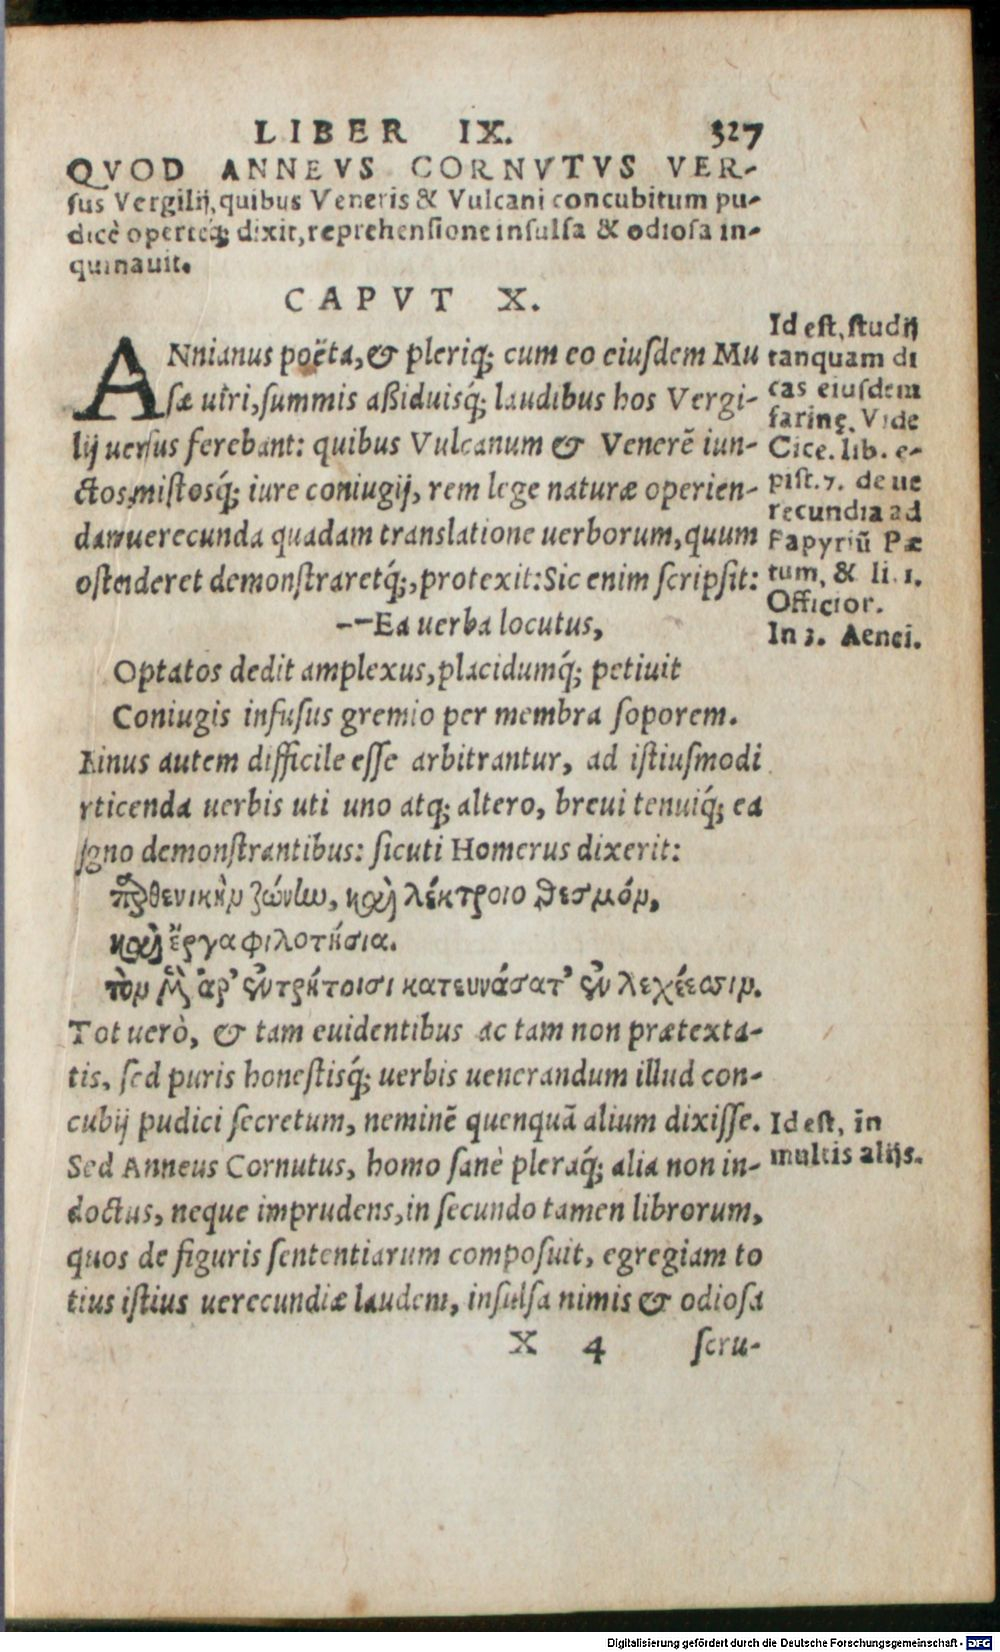 LIBER IX. 327
QVOD ANNEVS CORNVTVS VER-
sus Vergilij, quibus Veneris & Vulcani concubitum pu-
dicè operteq́; dixit, reprehensione insulsa & odiosa in-
quinauit.
CAPVT X.
ANnianus poëta, & pleriq; cum eo eiusdem Mu
sæ uiri, summis aßiduisq́; laudibus hos Vergi-
lij uersus ferebant: quibus Vulcanum & Venerē iun-
ctos mistosq́; iure coniugij, rem lege naturæ operien-
dam uerecunda quadam translatione uerborum, quum
ostenderet demonstraretq́;, protexit: Sic enim scripsit:
--Ea uerba locutus,
Optatos dedit amplexus, placidumq́; petiuit
Coniugis infusus gremio per membra soporem.
Minus autem difficile esse arbitrantur, ad istiusmodi
rticenda uerbis uti uno atq; altero, breui tenuiq́; ea
signo demonstrantibus: sicuti Homerus dixerit:
παρθενικὴν ζώνην, καὶ λέκτροιο θεσμόν,
καὶ ἔργα φιλοτήσια.
τὸν μὲν ἀρ' ἐν τρήτοισι κατευνάσατ' ἐν λεχέεσσιν.
Tot uerò, & tam euidentibus ac tam non prætexta-
tis, sed puris honestisq́; uerbis uenerandum illud con-
cubij pudici secretum, neminē quenquā alium dixisse.
Sed Anneus Cornutus, homo sanè pleraq́; alia non in-
doctus, neque imprudens, in secundo tamen librorum,
quos de figuris sententiarum composuit, egregiam to
tius istius uerecundiæ laudem, insulsa nimis & odiosa
X 4 scru-
Id est, studij
tanquam di
cas eiusdem
farinę. Vide
Cice. lib. e-
pist. 7. de ue
recundia ad
Papyriū Pæ
tum, & li. 1.
Officior.
In 3. Aenei.
Id est, in
multis alijs.
Digitalisierung gefördert durch die Deutsche Forschungsgemeinschaft - DFG